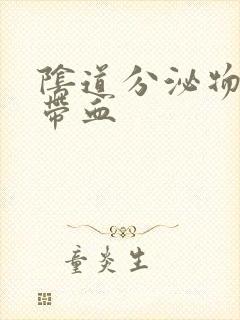 陰道分泌物
帶血
童炎生